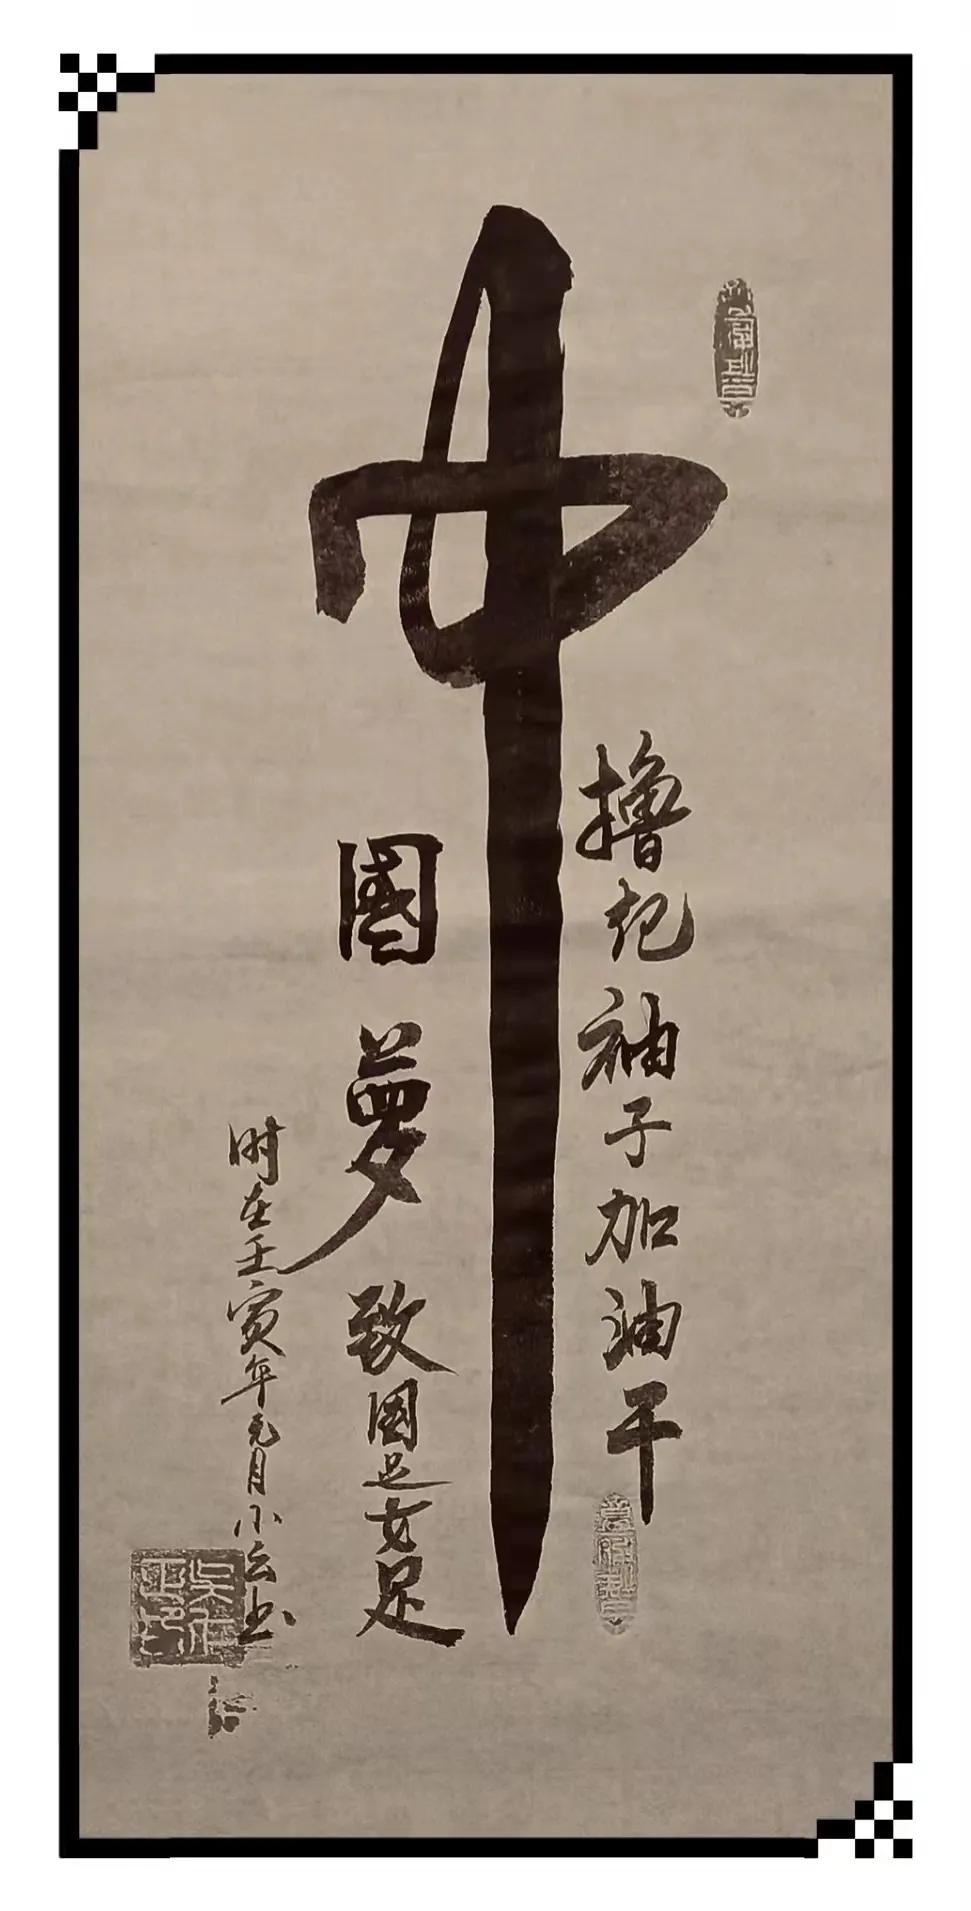 中
撸起袖子加油干
國夢
致国足女足
时在壬寅年元月小云书